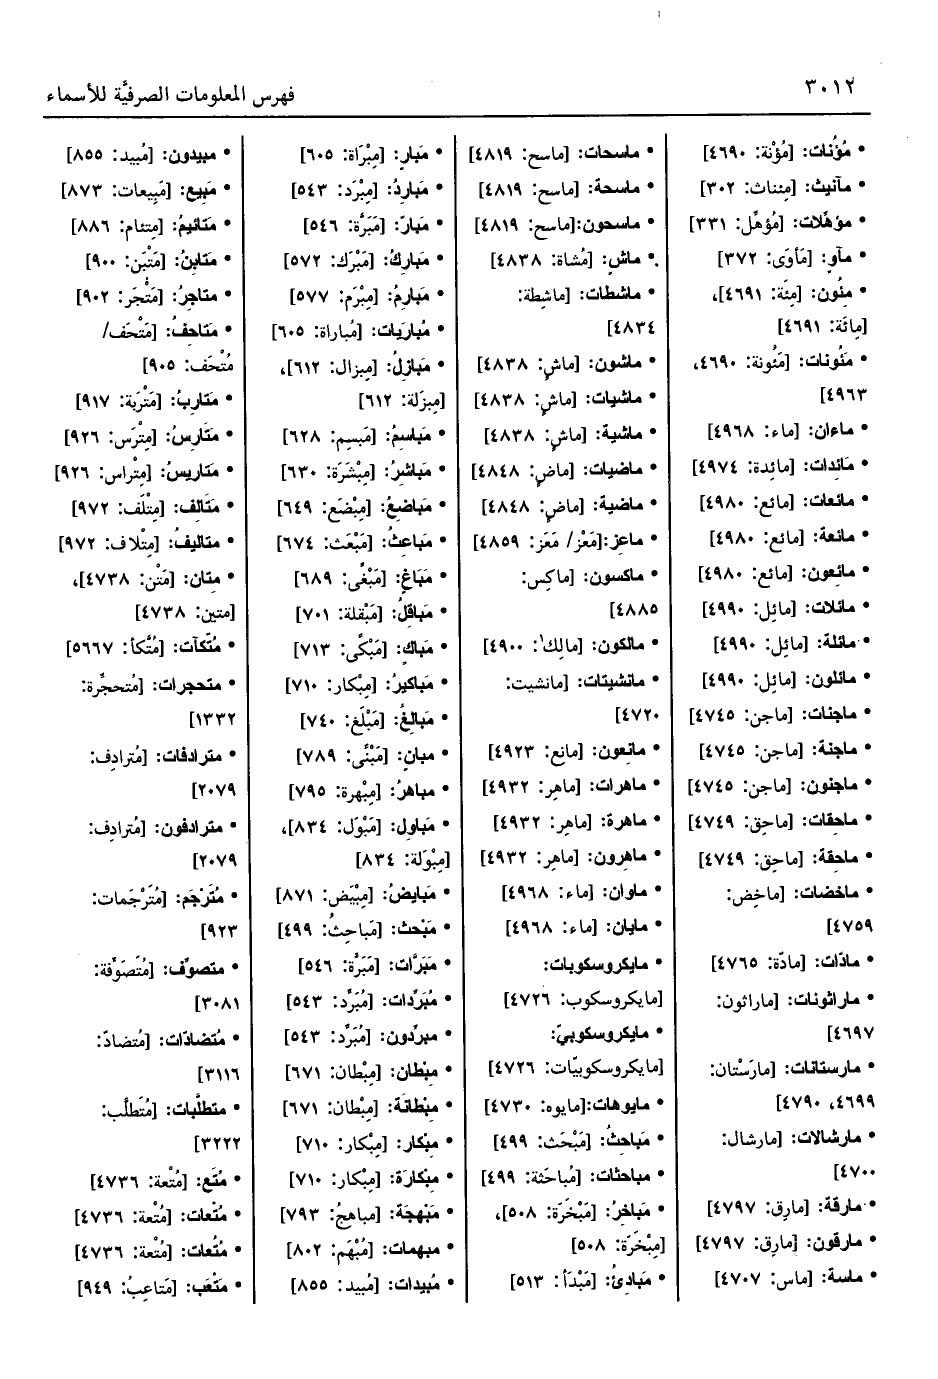 ٣٠١٢
فهرس المعلومات الصرفيَّة للأسماء
• مؤُنات: [مُؤْنة: ٤٦٩٠]
• مآنيث: [مِئناث: ٣٠٢]
• مؤهّلات: [مُؤهِّل: ٣٣١]
• مآوٍ: [مَأوَى: ٣٧٢]
• مئون: [مِئَة: ٤٦٩١]،
[مِائَة: ٤٦٩١]
• مَئونات: [مَئُونة: ٤٦٩٠،
٤٩٦٣]
• ماءان: [ماء: ٤٩٦٨]
• مائدات: [مائدة: ٤٩٧٤]
• مائعات: [مائع: ٤٩٨٠]
• مائعة: [مائع: ٤٩٨٠]
• مائعون: [مائع: ٤٩٨٠]
• مائلات: [مائل: ٤٩٩٠]
• مائلة: [مائِل: ٤٩٩٠]
• مائلون: [مائِل: ٤٩٩٠]
• ماجنات: [ماجن: ٤٧٤٥]
• ماجنة: [ماجن: ٤٧٤٥]
• ماجنون: [ماجن: ٤٧٤٥]
• ماحقات: [ماحِق: ٤٧٤٩]
• ماحقة: [ماحِق: ٤٧٤٩]
• ماخضات: [ماخِض:
٤٧٥٩]
• مادّات: [مادّة: ٤٧٦٥]
• ماراثونات: [ماراثون:
٤٦٩٧]
• مارستانات: [مارَسْتان:
٤٦٩٩، ٤٧٩٠]
• مارشالات: [مارشال:
٤٧٠٠]
• مارقة: [مارِق: ٤٧٩٧]
• مارقون: [مارِق: ٤٧٩٧]
• ماسة: [ماس: ٤٧٠٧]
• ماسحات: [ماسح: ٤٨١٩]
• ماسحة: [ماسح: ٤٨١٩]
• ماسحون:[ماسح: ٤٨١٩]
• ماشٍ: [مُشاة: ٤٨٣٨]
• ماشطات: [ماشِطة:
٤٨٣٤]
• ماشون: [ماشٍ: ٤٨٣٨]
• ماشيات: [ماشٍ: ٤٨٣٨]
• ماشية: [ماشٍ: ٤٨٣٨]
• ماضيات: [ماضٍ: ٤٨٤٨]
• ماضية: [ماضٍ: ٤٨٤٨]
• ماعز:[مَعْز/ مَعَز: ٤٨٥٩]
• ماكسون: [ماكِس:
٤٨٨٥]
• مالكون: [مالِك: ٤٩٠٠]
• مانشيتات: [مانشيت:
٤٧٢٠]
• مانعون: [مانع: ٤٩٢٣]
• ماهرات: [ماهِر: ٤٩٣٢]
• ماهرة: [ماهِر: ٤٩٣٢]
• ماهرون: [ماهِر: ٤٩٣٢]
• ماوان: [ماء: ٤٩٦٨]
• مايان: [ماء: ٤٩٦٨]
• مايكروسكوبات:
[مايكروسكوب: ٤٧٢٦]
• مايكروسكوبيّ:
[مايكروسكوبيّات: ٤٧٢٦]
• مايوهات:[مايوه: ٤٧٣٠]
• مَباحثُ: [مَبْحَث: ٤٩٩]
• مباحثات: [مُباحَثة: ٤٩٩]
• مَباخرُ: [مَبْخَرَة: ٥٠٨]،
[مِبْخَرَة: ٥٠٨]
• مَبادئُ: [مَبْدَأ: ٥١٣]
• مَبارٍ: [مِبْرَاة: ٦٠٥]
• مَباردُ: [مِبْرَد: ٥٤٣]
• مَبارّ: [مَبَرَّة: ٥٤٦]
• مَباركُ: [مَبْرَك: ٥٧٢]
• مَبارمُ: [مِبْرَم: ٥٧٧]
• مُباريات: [مُباراة: ٦٠٥]
• مَبازلُ: [مِبزال: ٦١٢]،
[مِبزلَة: ٦١٢]
• مَباسمُ: [مَبسِم: ٦٢٨]
• مَباشرُ: [مِبْشَرَة: ٦٣٠]
• مَباضعُ: [مِبْضَع: ٦٤٩]
• مَباعثُ: [مَبْعَث: ٦٧٤]
• مَباغٍ: [مَبْغًى: ٦٨٩]
• مَباقلُ: [مَبْقلة: ٧٠١]
• مَباكٍ: [مَبْكًى: ٧١٣]
• مَباكيرُ: [مِبْكار: ٧١٠]
• مَبالغُ: [مَبْلَغ: ٧٤٠]
• مبانٍ: [مَبْنًى: ٧٨٩]
• مباهرُ: [مِبْهرة: ٧٩٥]
• مَباول: [مَبْوَل: ٨٣٤]،
[مِبْوَلة: ٨٣٤]
• مَبايضُ: [مِبْيَض: ٨٧١]
• مَبْحث: [مَباحِثُ: ٤٩٩]
• مَبَرّات: [مَبَرَّة: ٥٤٦]
• مُبَرِّدات: [مُبَرِّد: ٥٤٣]
• مبرِّدون: [مُبَرِّد: ٥٤٣]
• مِبْطان: [مِبْطان: ٦٧١]
• مِبْطانَة: [مِبْطان: ٦٧١]
• مِبْكار: [مِبْكار: ٧١٠]
• مِبْكارَة: [مِبْكار: ٧١٠]
• مَبْهجة: [مباهجُ: ٧٩٣]
• مبهمات: [مُبْهَم: ٨٠٢]
• مُبيدات: [مُبيد: ٨٥٥]
• مبيدون: [مُبيد: ٨٥٥]
• مَبيع: [مَبِيعات: ٨٧٣]
• مَتائيمُ: [مِتئام: ٨٨٦]
• مَتابنُ: [مَتْبَن: ٩٠٠]
• متاجرُ: [مَتْجَر: ٩٠٢]
• مَتاحفُ: [مَتْحَف/
مُتْحَف: ٩٠٥]
• مَتاربُ: [مَتْرَبة: ٩١٧]
• مَتارسُ: [مِتْرَس: ٩٢٦]
• مَتاريسُ: [مِتْراس: ٩٢٦]
• مَتالف: [مِتْلَف: ٩٧٢]
• متاليفُ: [مِتْلاف: ٩٧٢]
• متان: [مَتْن: ٤٧٣٨]،
[متين: ٤٧٣٨]
• مُتّكآت: [مُتَّكأ: ٥٦٦٧]
• متحجرات: [مُتحجِّرة:
١٣٣٢]
• مترادفات: [مُترادِف:
٢٠٧٩]
• مترادفون: [مُترادِف:
٢٠٧٩]
• مُتَرْجَم: [مُتَرْجَمات:
٩٢٣]
• متصوِّف: [مُتَصَوِّفة:
٣٠٨١]
• مُتضادّات: [مُتضادّ:
٣١١٦]
• متطلَّبات: [مُتَطلَّب:
٣٢٢٢]
• مُتَع: [مُتْعة: ٤٧٣٦]
• مُتْعات: [مُتْعة: ٤٧٣٦]
• مُتُعات: [مُتْعة: ٤٧٣٦]
• مَتْعَب: [مَتاعِبُ: ٩٤٩]